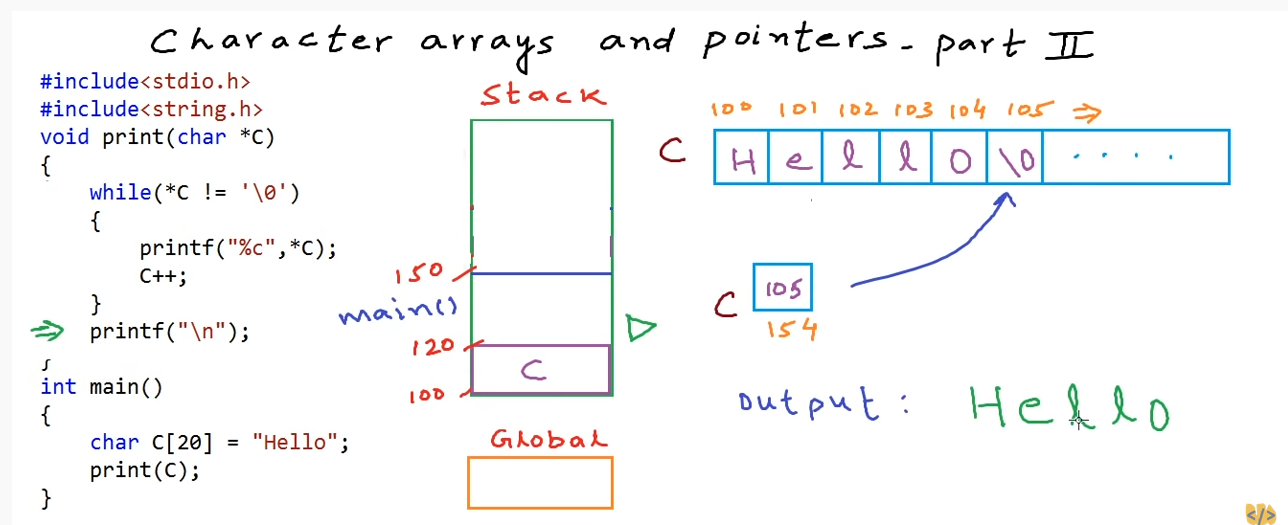 Character arrays and pointers - part II
#include<stdio.h>
#include<string.h>
void print(char *C)
{
while(*C != '\0')
{
printf("%c",*C);
C++;
}
printf("\n");
int main()
{
char C[20] = "Hello";
print(C);
}
Stack
150
main()
120
C
100
Global
100 101 102 103 104 105 ⇒
C H e l l o \0 . . . .
C 105
154
output: Hello
</>